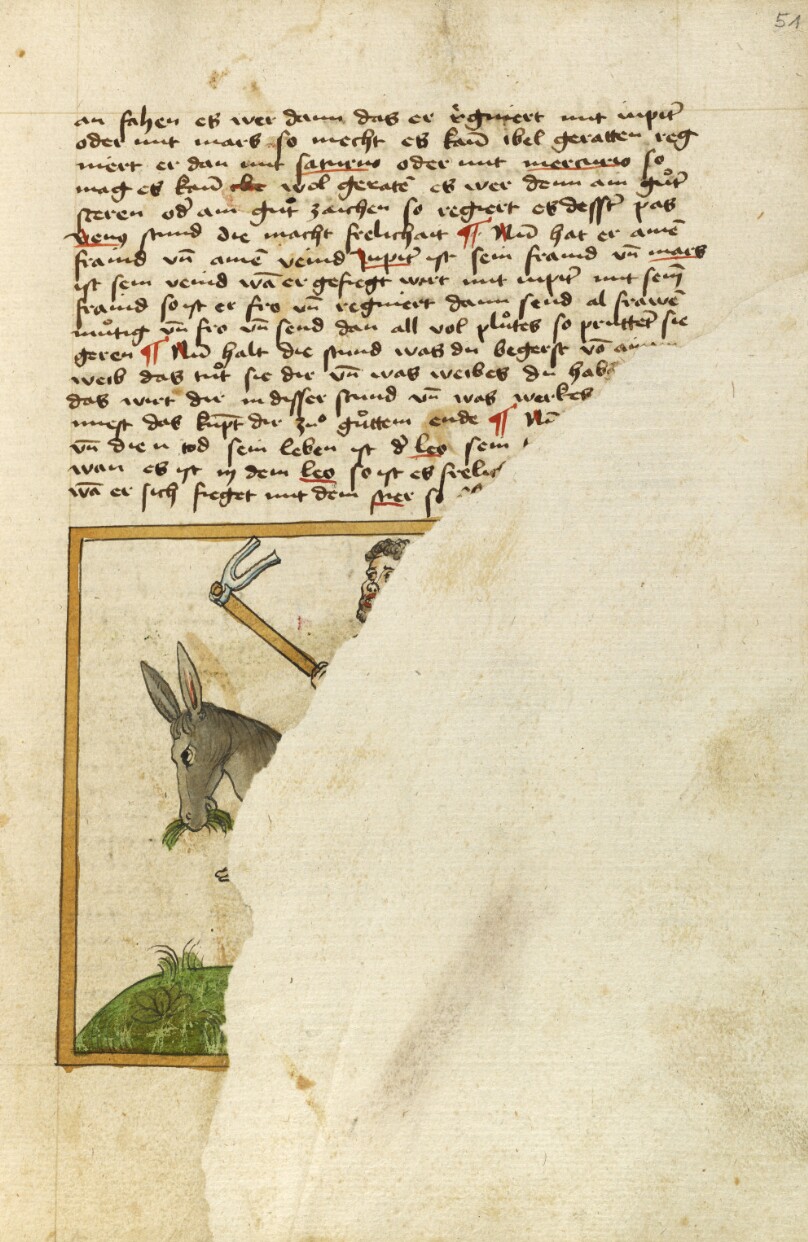 51
an fahen es wer dann das er rēgniert mit iupit̄
oder mit mars so mecht es kaū ibel geratten reg
niert er dan mit saturnus oder mit mercurius so
mag es kaū wol geratē es wer denn am gůt̄
steren od̄ am gůt̄ zaichen so regiert es desst̄ pas
venus stund die macht frelichait ¶ Nū hat er ainē
fraind vn̄ ainē veind Jupit̄ ist sein fraind vn̄ mars
ist sein veind wā er gefiegt wirt mit iupit̄ mit sein̄
fraind so ist er fro vn̄ regniert dann send al frawē
můtig vn̄ fro vn̄ send dan all vol plůtes so prüttet sie
geren ¶ Nū halt die stund was du begerst vō
weib das tůt sie dir vn̄ was weibes du hab
das wirt dir in disser stund vn̄ was werkes
das kūpt dir zů gůttem ende ¶ Nū
vn̄ die tod sein leben ist d̄ leo sein
wan es ist in dem leo so ist es frelic
wā er sich fieget mit dem stier so